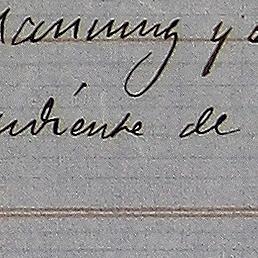 Manning y
ndiente de